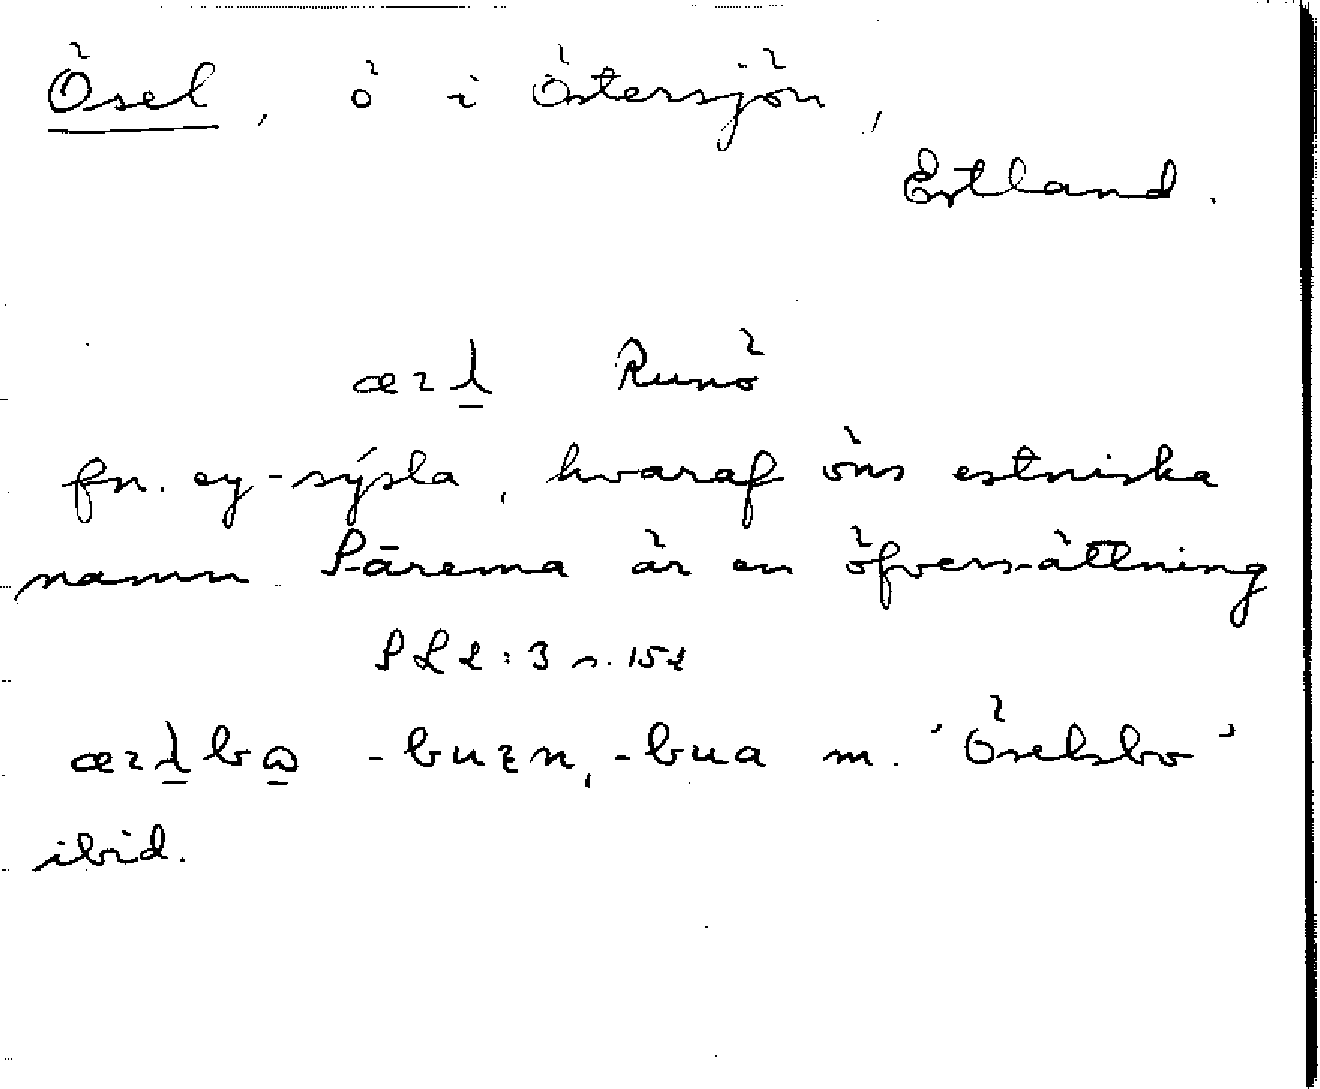 Ösel, ö i Östersjön,
Estland.
Runö
fn. ey-sýsla, hvaraf öns estniska
namn Sārema är en öfversättning
SL 2:3 s. 152
-buɛn, -bua m. 'Öselsbo'
ibid.